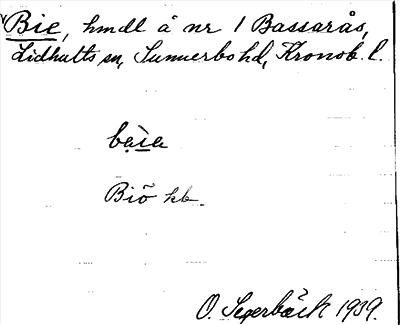 Bie, hmdl å nr 1 Bassarås,
Lidhults sn, Sunnerbo hd, Kronob. l.
bạìa
Biö kb.
O. Segerbäck 1939.